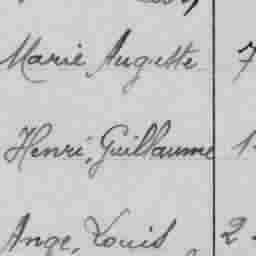 Marie Auguste 7
Henri, Guillaume 1
Ange, Louis 2